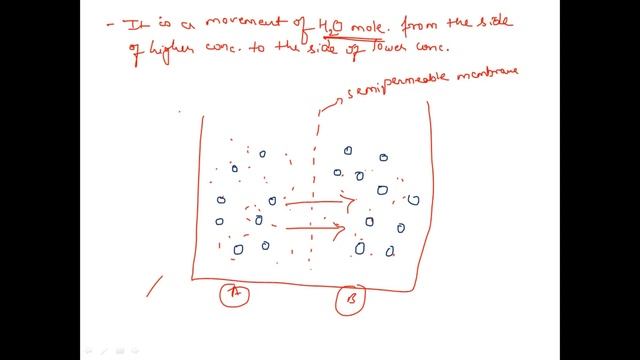 - It is a movement of H₂O mole. from the side
of higher conc. to the side of lower conc.
semipermeable membrane
A
B